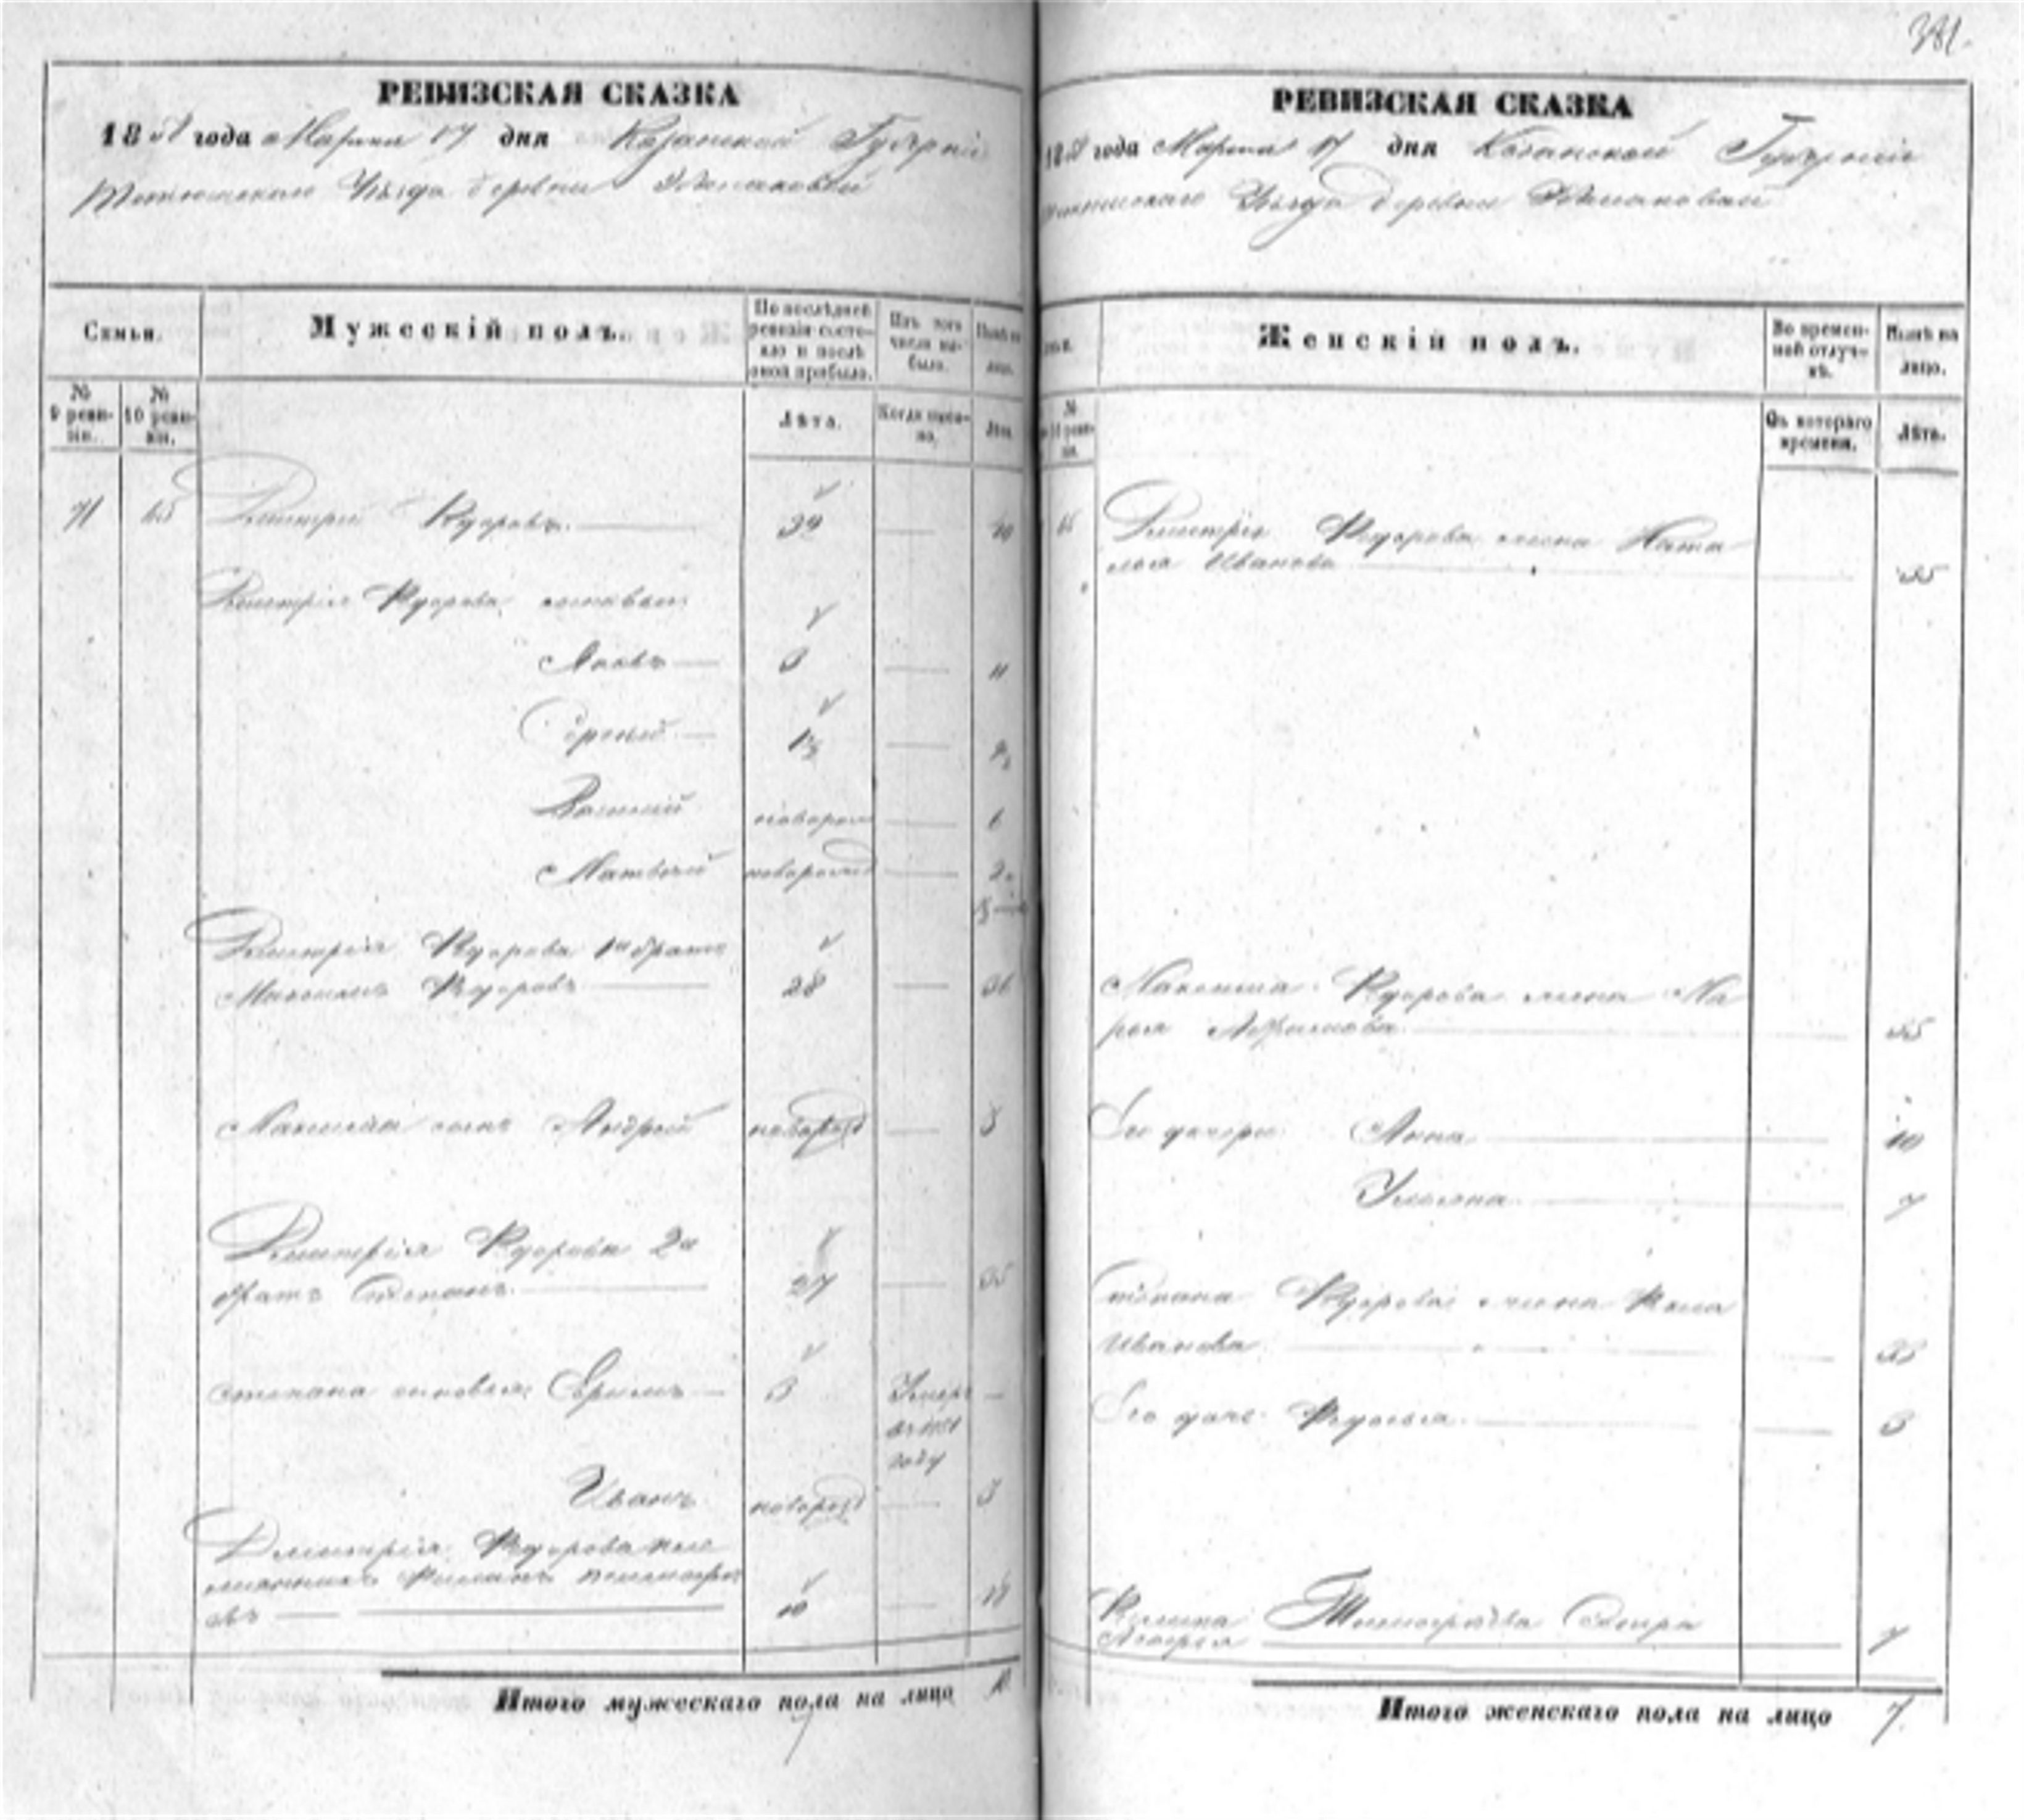 381.
РЕВИЗСКАЯ СКАЗКА
18 года Марта 17 дня Казанской Губерніи
Тетюшскаго Уѣзда деревни
Семьи.
Мужескій полъ.
По послѣдней ревизіи состояло и послѣ оной прибыло.
Изъ того числа выбыло.
Нынѣ на лицо.
№ 9 ревизіи.
№ 10 ревизіи.
Лѣта.
Когда именно.
Лѣта.
71 65 Дмитрій Ѳедоровъ 32 40
Дмитрія Ѳедорова сыновья
Яковъ 3 11
Сергѣй 1½ 9½
Василій новорож 6
Матвѣй новорожд 2
Дмитрія Ѳедорова 1й братъ
Максимъ Ѳедоровъ 28 36
Максима сынъ Андрей новорожд 3
Дмитрія Ѳедорова 2й
братъ Степанъ 27 35
Степана сыновья Ефимъ 3 Умеръ
въ 1851
году
Иванъ новорожд 3
Дмитрія Ѳедорова пле
мянникъ Тимофе
евъ 10 18
Итого мужескаго пола на лицо 10
РЕВИЗСКАЯ СКАЗКА
года Марта 17 дня Казанской Губерніи
Уѣзда деревни
Женскій полъ.
Во временной отлучкѣ.
Нынѣ на лицо.
№ 10 ревизіи.
Съ котораго времени.
Лѣта.
65 Дмитрія Ѳедорова жена Ната
лья Иванова 35
Максима Ѳедорова жена Ма
рья Ефимова 35
Его дочери Анна 10
Ульяна 7
Степана Ѳедорова жена
Иванова 33
Его дочь Ѳедосья 3
Тимофеева сестра
7
Итого женскаго пола на лицо 7.